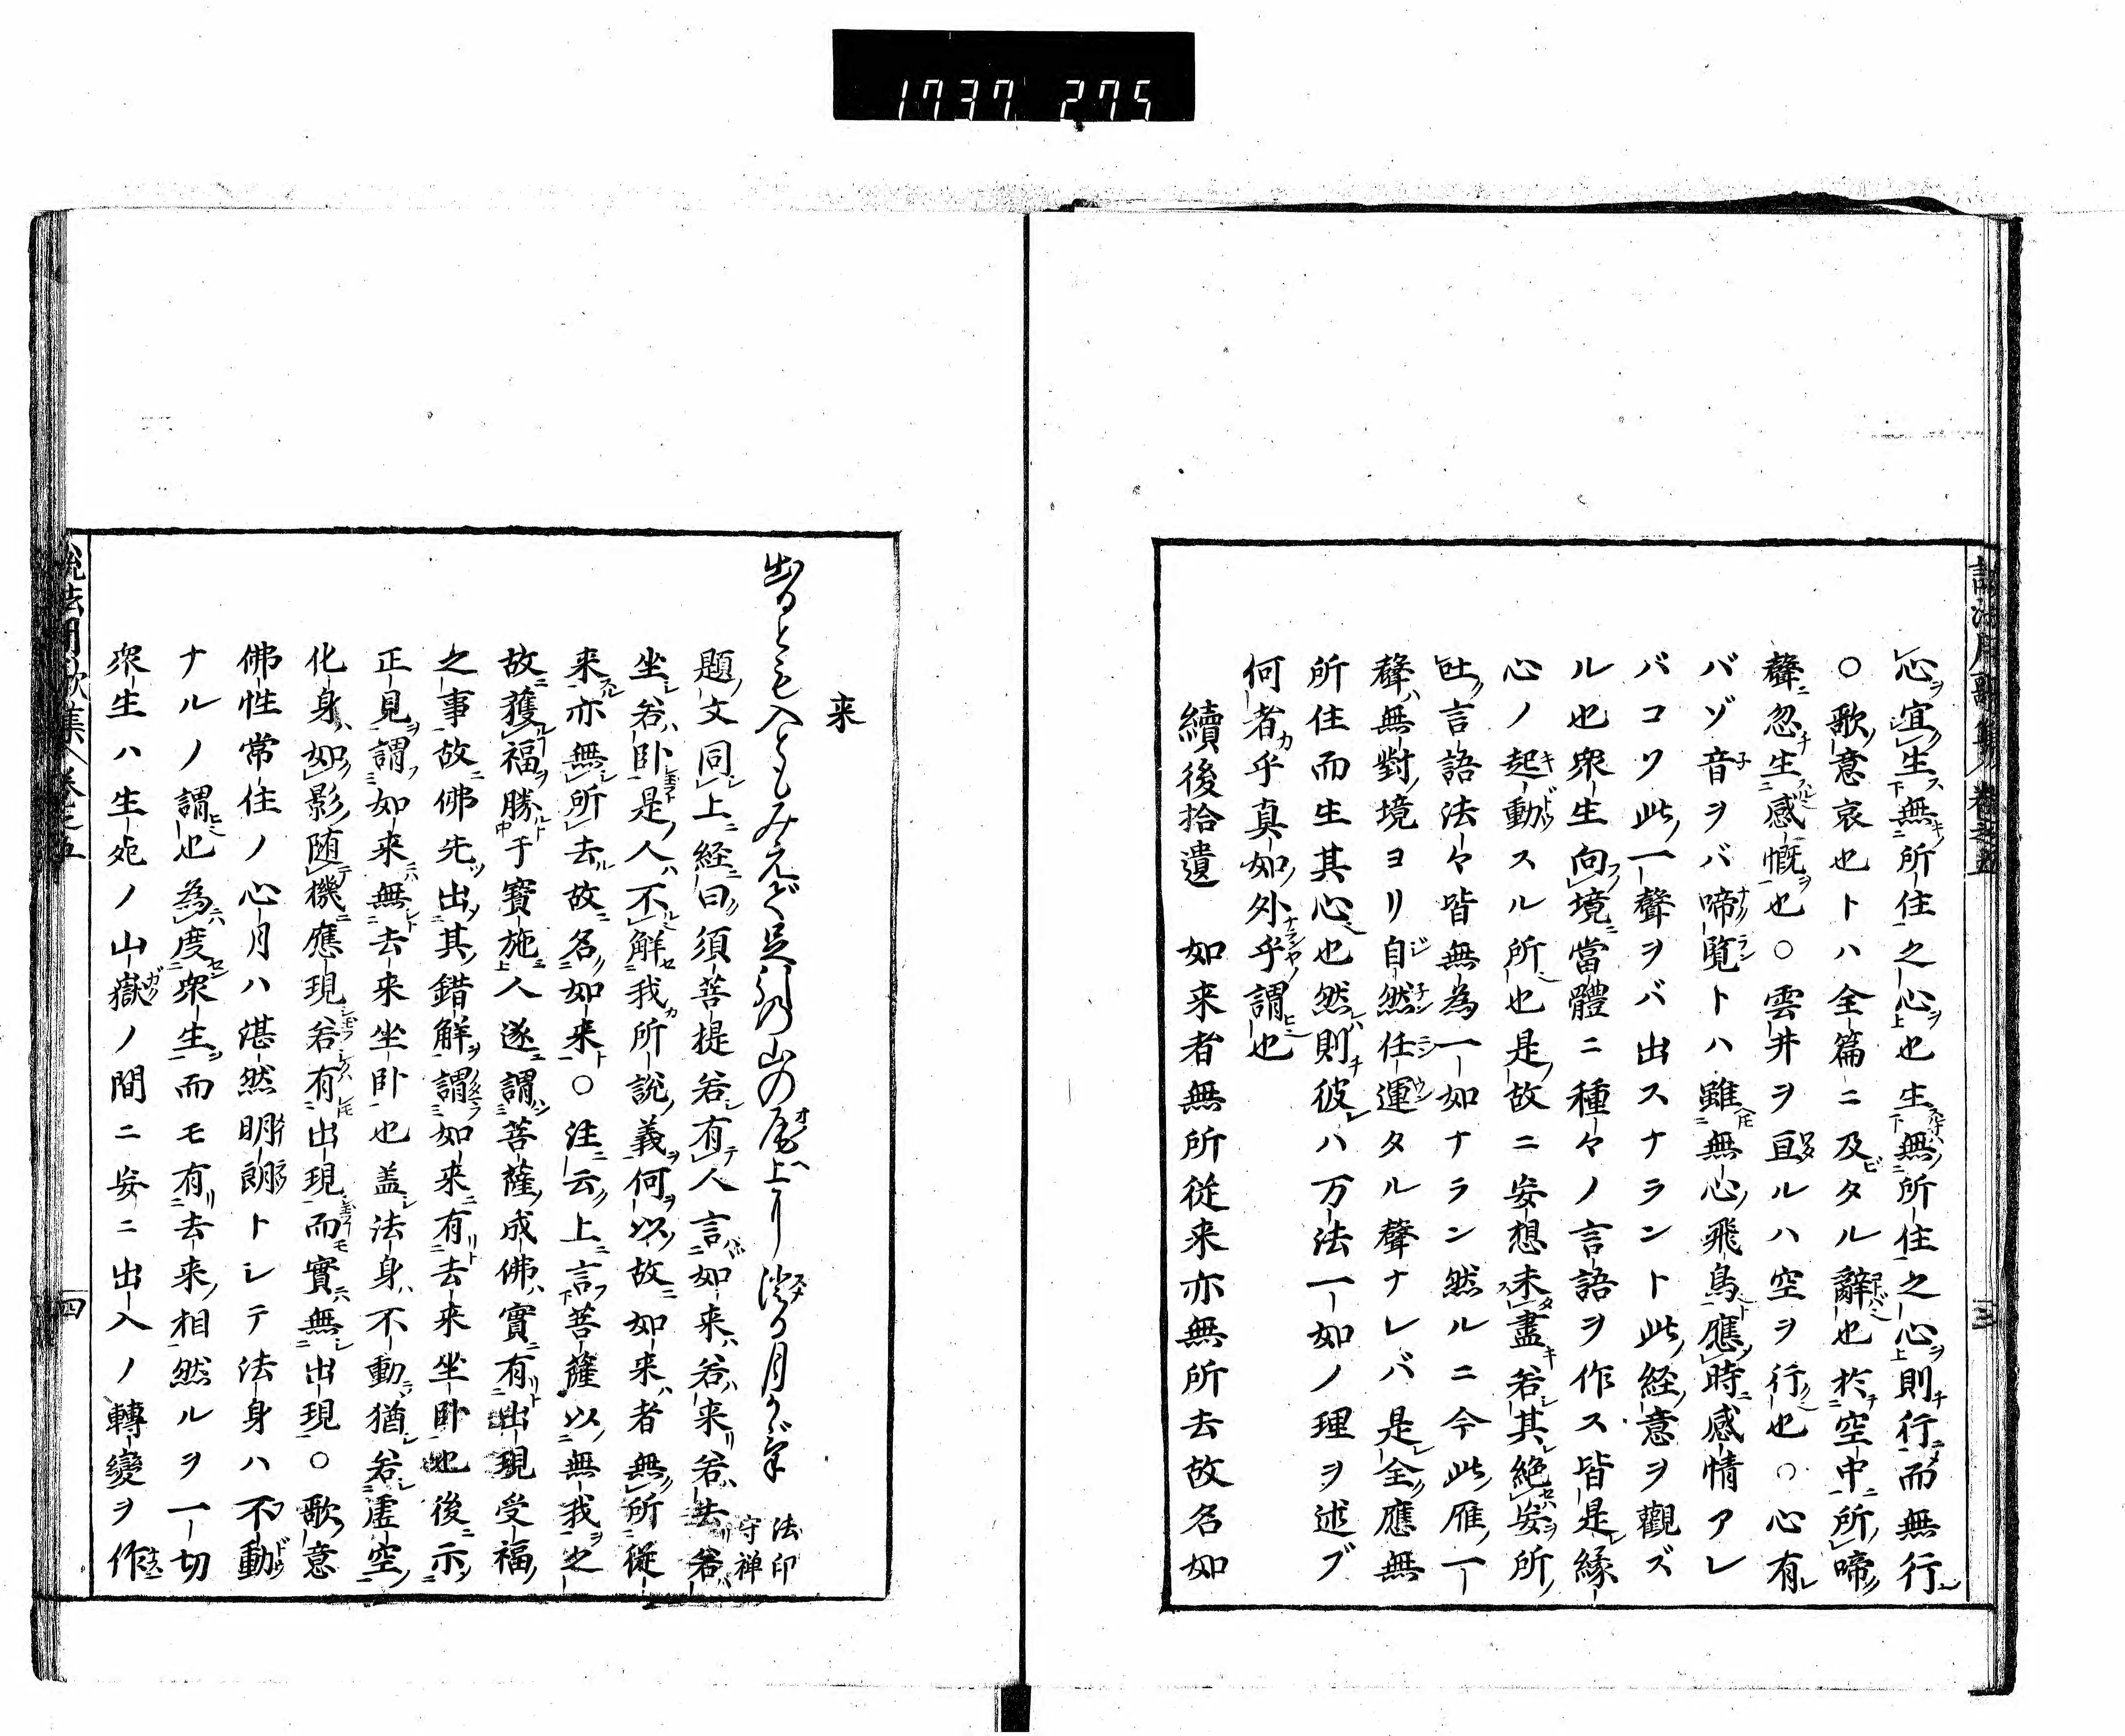 1737 275
心宜生無所住之心也生無所住之心則行而無行
○歌意哀也トハ全篇ニ及タル辭也於空中所啼
聲忽生感慨也○雲井ヲ亘ルハ空ヲ行也○心有
バゾ音ヲバ啼覧トハ雖無心飛鳥應時感情アレ
バコソ此一聲ヲバ出スナラント此経意ヲ觀ズ
ル也衆生向境當體ニ種々ノ言語ヲ作ス皆是縁
心ノ起動スル所也是故ニ妄想未盡若其絶妄所
吐言語法々皆無為一如ナラン然ルニ今此雁一
聲無對境ヨリ自然任運タル聲ナレバ是全應無
所住而生其心也然則彼ハ万法一如ノ理ヲ述ブ
何者乎真如外乎謂也
續後拾遺 如来者無所従来亦無所去故名如
三
来
出るとも入ともみえず足引の山の尾上にすめる月かな
法印守禅
題文同上経曰須菩提若有人言如来若来若去若
坐若卧是人不解我所説義何以故如来者無所従
来亦無所去故名如来○注云上言菩薩以無我之
故獲福勝于寶施人遂謂菩薩成佛實有出現受福
之事故佛先出其錯解謂如来有去来坐卧也後示
正見謂如来無去来坐卧也盖法身不動猶若虚空
化身如影随機應現若有出現而實無出現○歌意
佛性常住ノ心月ハ湛然明朗トシテ法身ハ不動
ナルノ謂也為度衆生而モ有去来相然ルヲ一切
衆生ハ生死ノ山嶽ノ間ニ妄ニ出入ノ轉變ヲ作
四